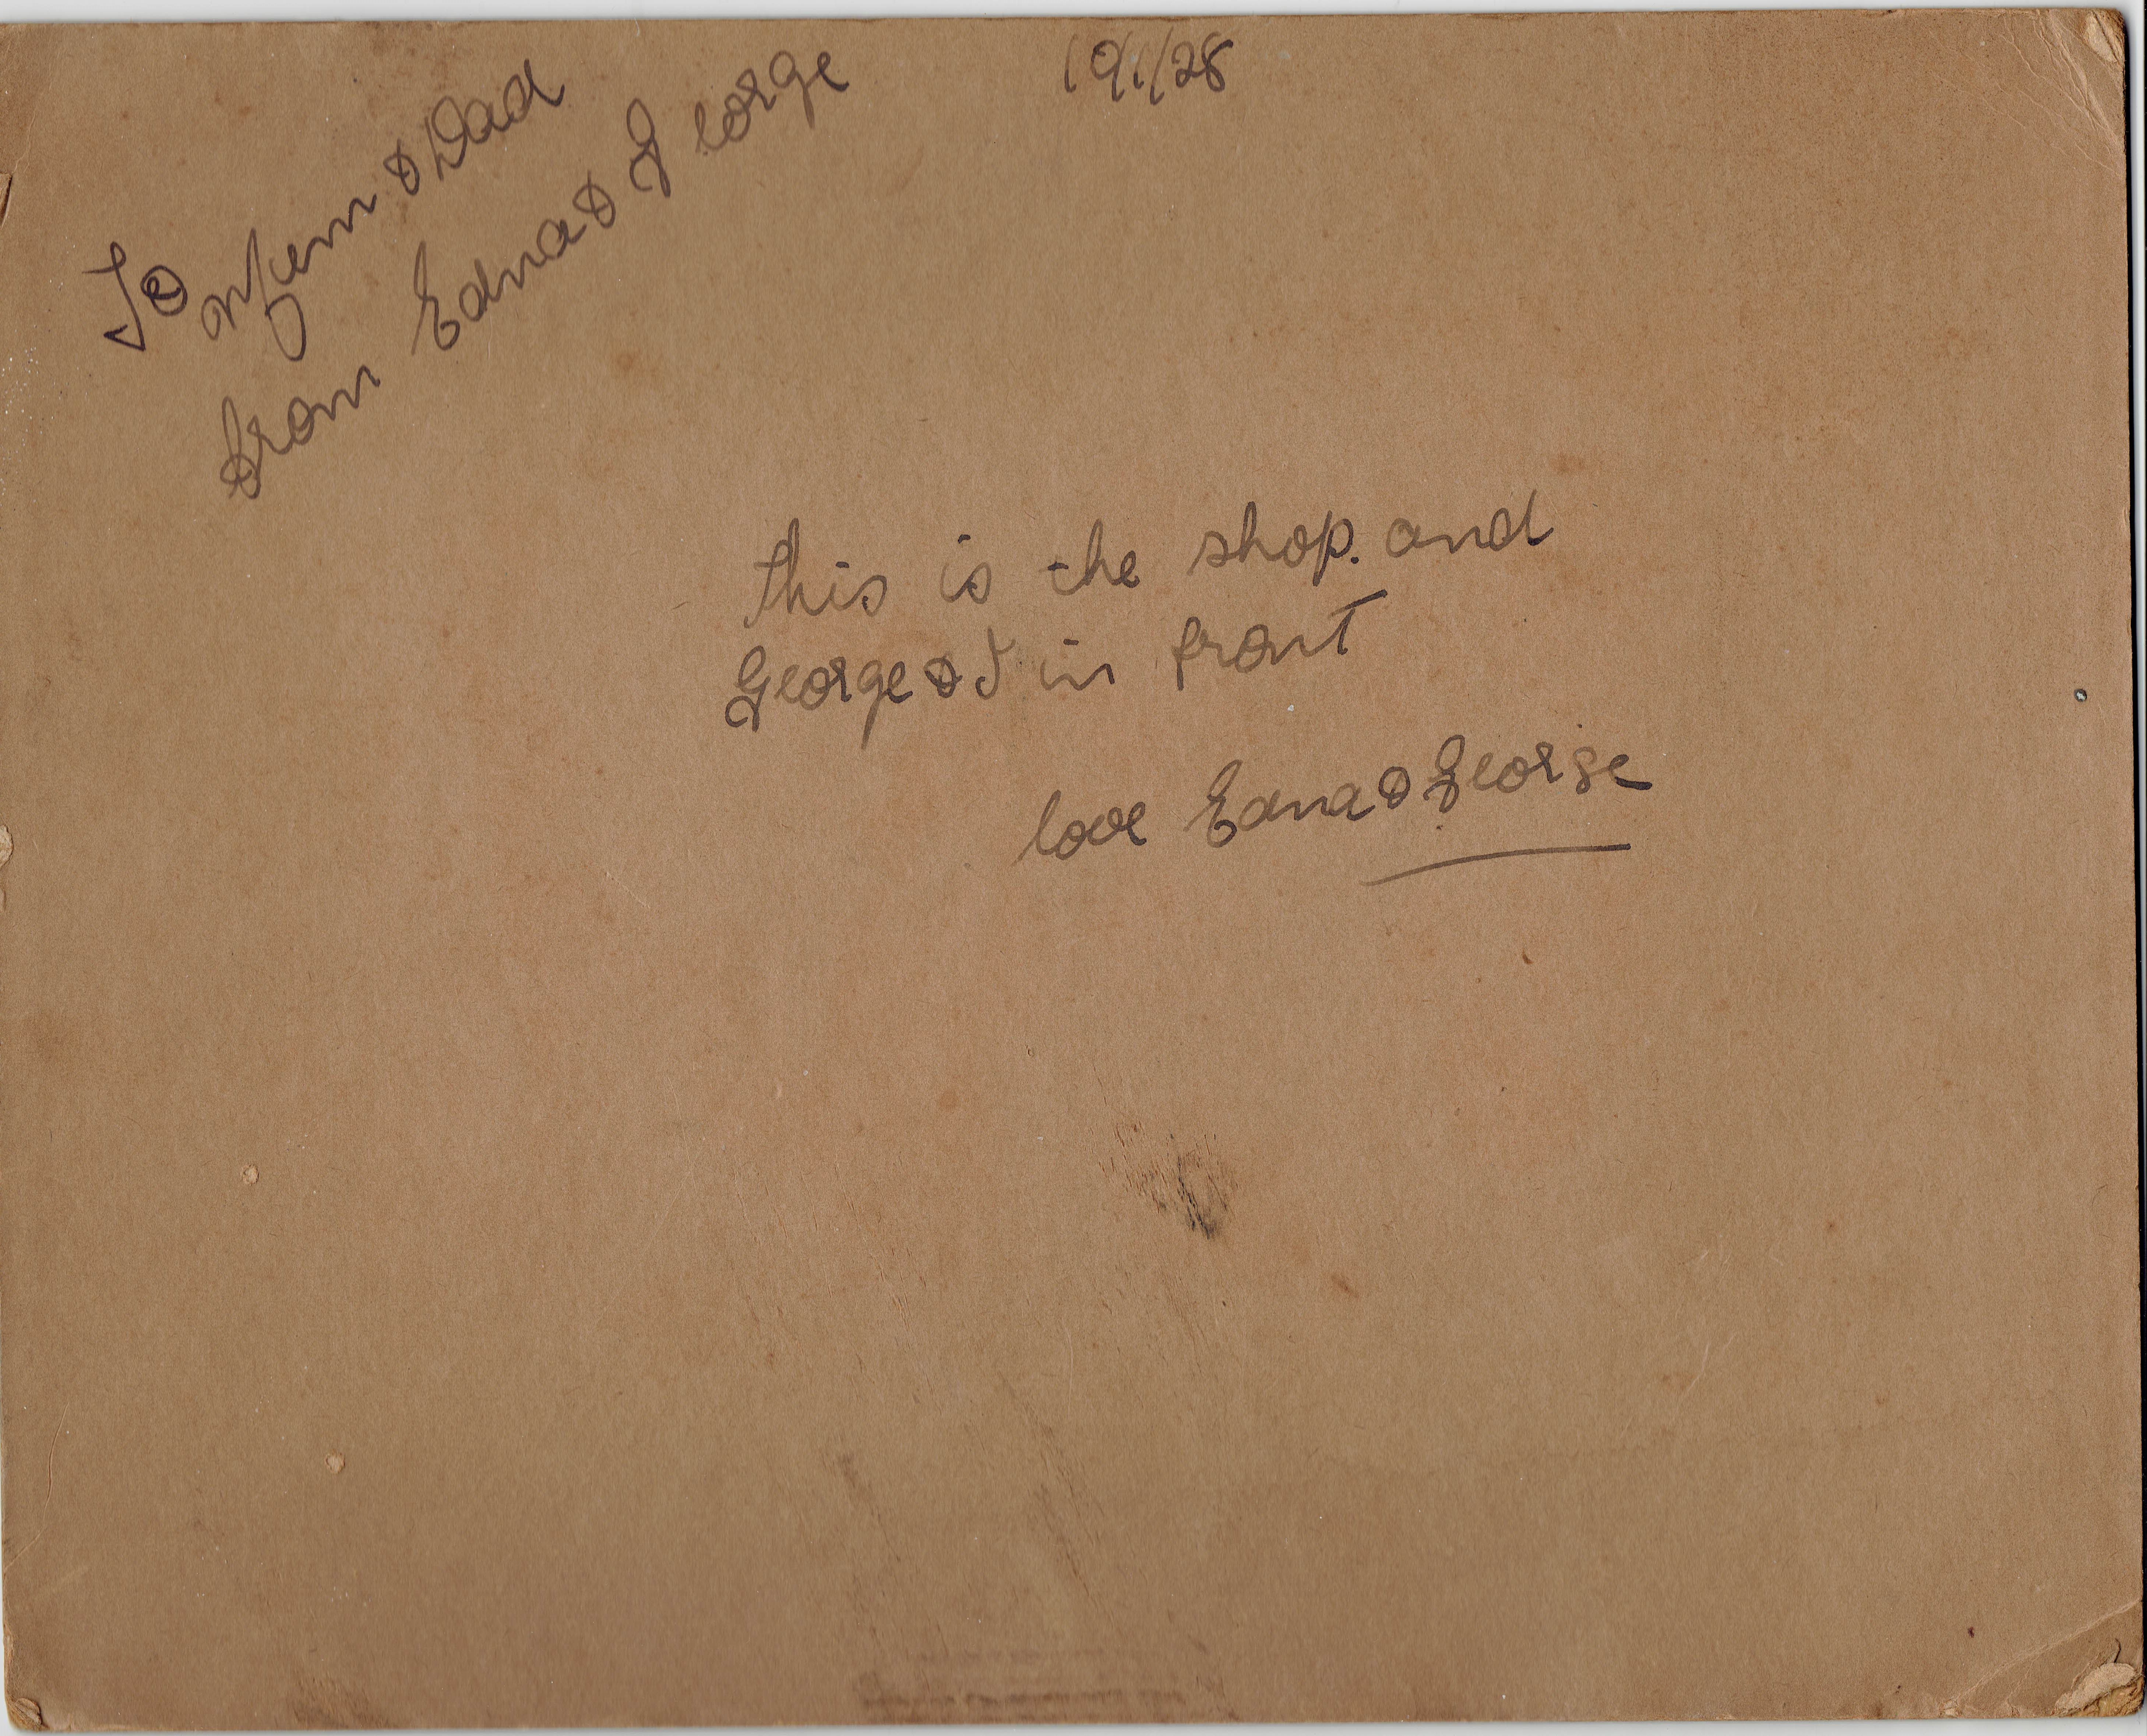 To Mum & Dad
from Edna & George
this is the shop. and
George & I in front
love Edna & George